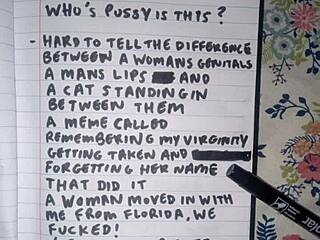 WHO'S PUSSY IS THIS?
- HARD TO TELL THE DIFFERENCE
BETWEEN A WOMANS GENITALS
A MANS LIPS AND
A CAT STANDING IN
BETWEEN THEM
A MEME CALLED
REMEMBERING MY VIRGINITY
GETTING TAKEN AND
FORGETTING HER NAME
THAT DID IT
A WOMAN MOVED IN WITH
ME FROM FLORIDA, WE
FUCKED!